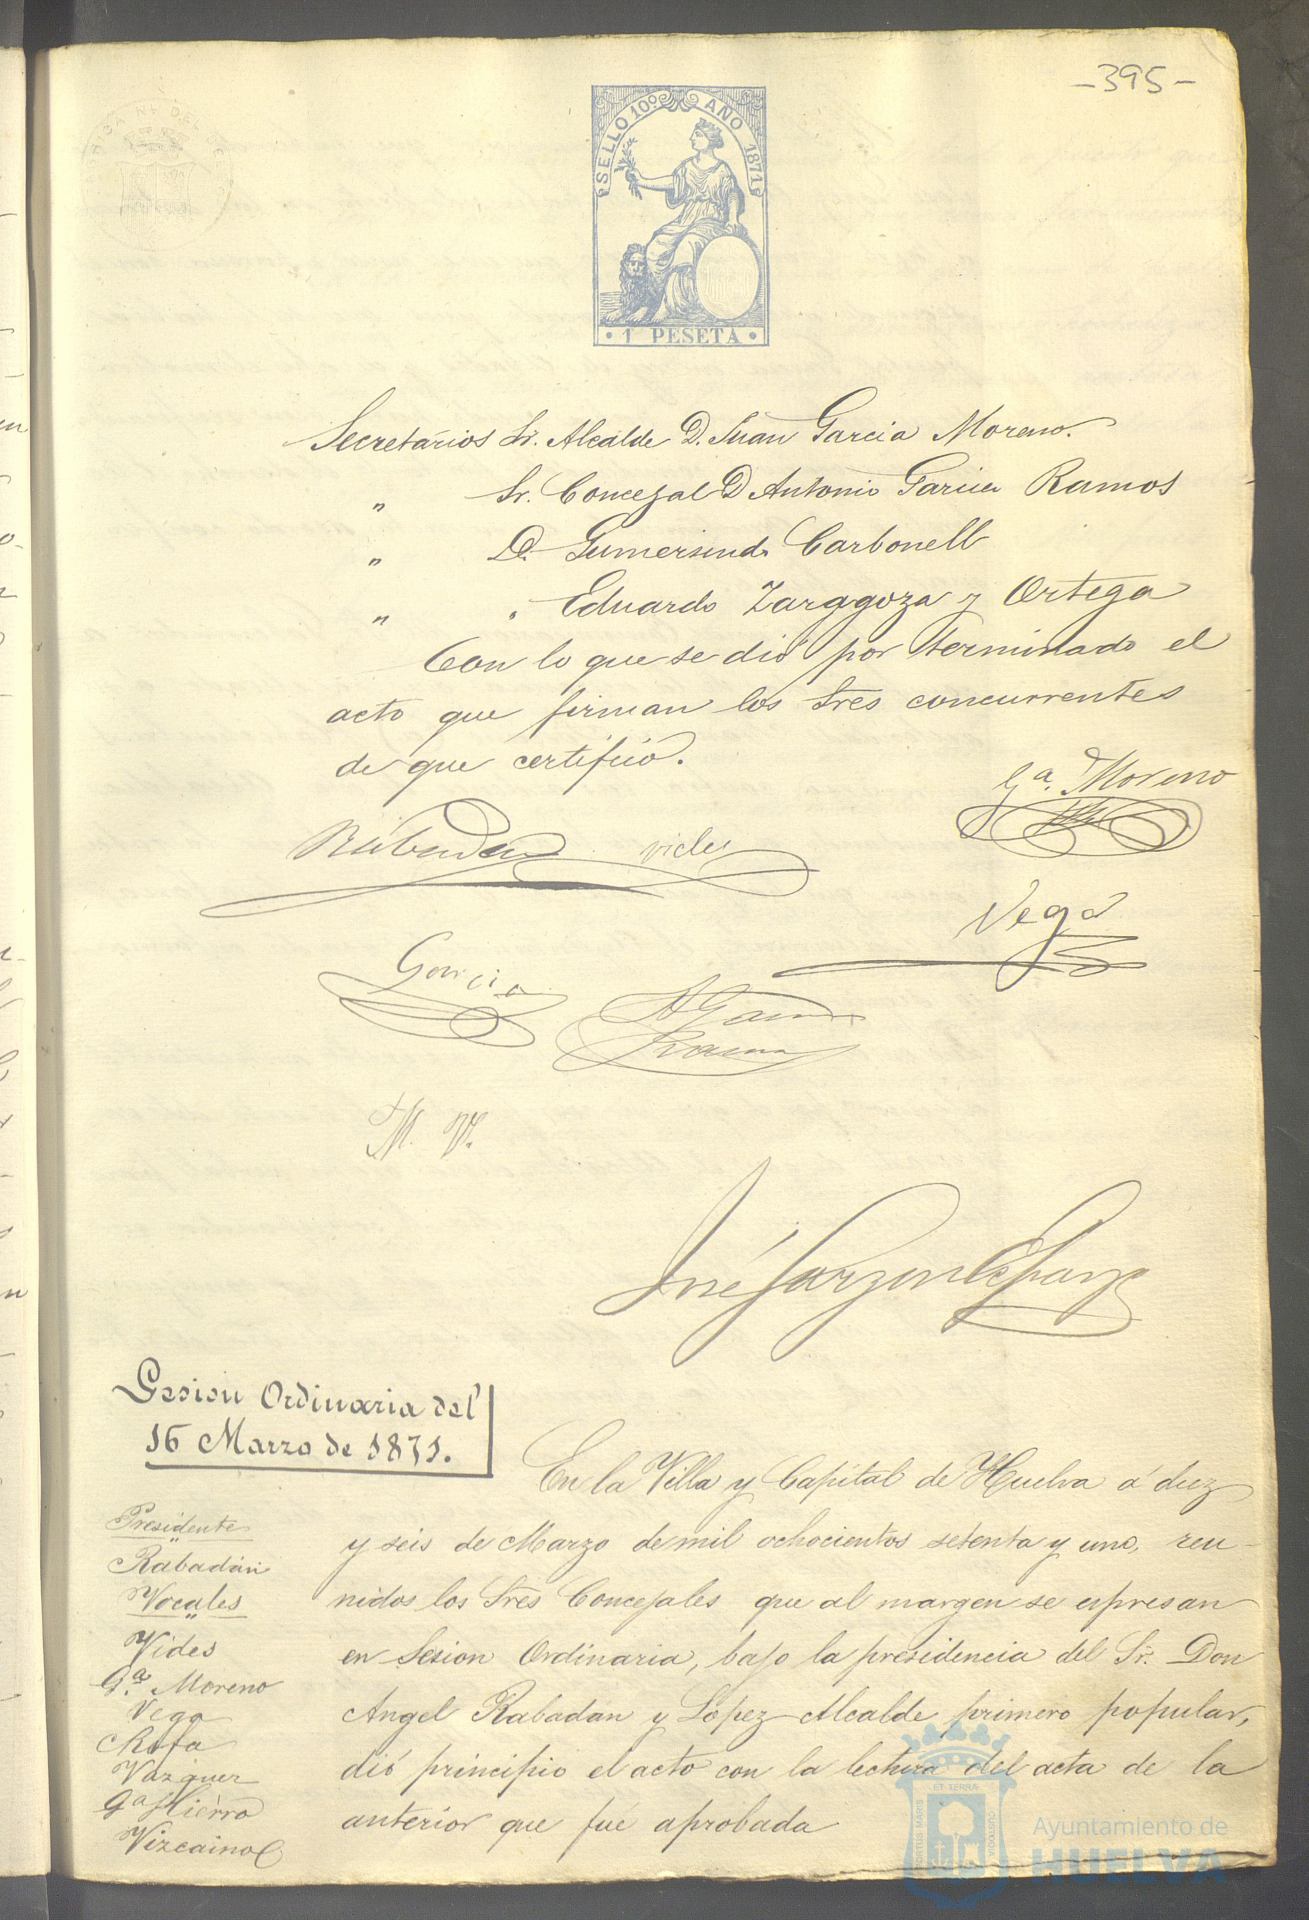 -395-
SELLO 10º AÑO 1871
1 PESETA
Secretarios Sr. Alcalde D. Juan Garcia Moreno.
" Sr. Concejal D Antonio Garcia Ramos
" D. Gumersindo Carbonell
" " Eduardo Zaragoza y Ortega
Con lo que se dió por terminado el
acto que firman los Sres concurrentes
de que certifico.
Gª. Moreno
Rabadan Vides
Vega
Garcia
A Garcia
Ramos
M. V.
José
Sesion Ordinaria del
16 Marzo de 1871.
Presidente
Rabadán
Vocales
Vides
Gª. Moreno
Vega
Rofa
Vazquez
Gª Hierro
Vizcaino
En la Villa y Capital de Huelva á diez
y seis de Marzo de mil ochocientos setenta y uno, reu-
nidos los Sres Concejales que al margen se espresan
en Sesion Ordinaria, bajo la presidencia del Sr. Don
Angel Rabadan y Lopez Alcalde primero popular,
dió principio el acto con la lectura del acta de la
anterior que fué aprobada
PORTUS MARIS ET TERRAE CUSTODIA
Ayuntamiento de
HUELVA